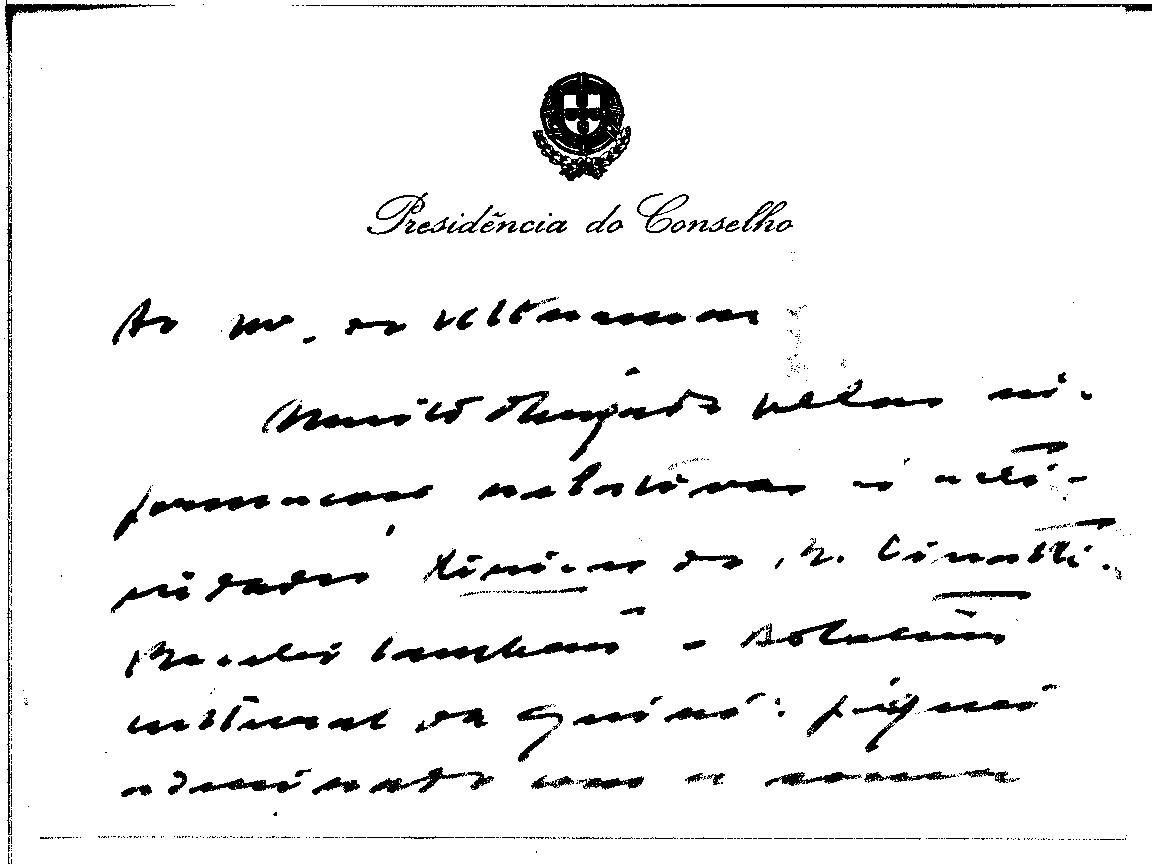 Presidência do Conselho
Ao Mo. do Ultramar
Muito obrigado pelas in-
formações relativas à acti-
vidades do R. Cinatti.
Recebi também o Boletim
cultural da Guiné: fiquei
admirado com a